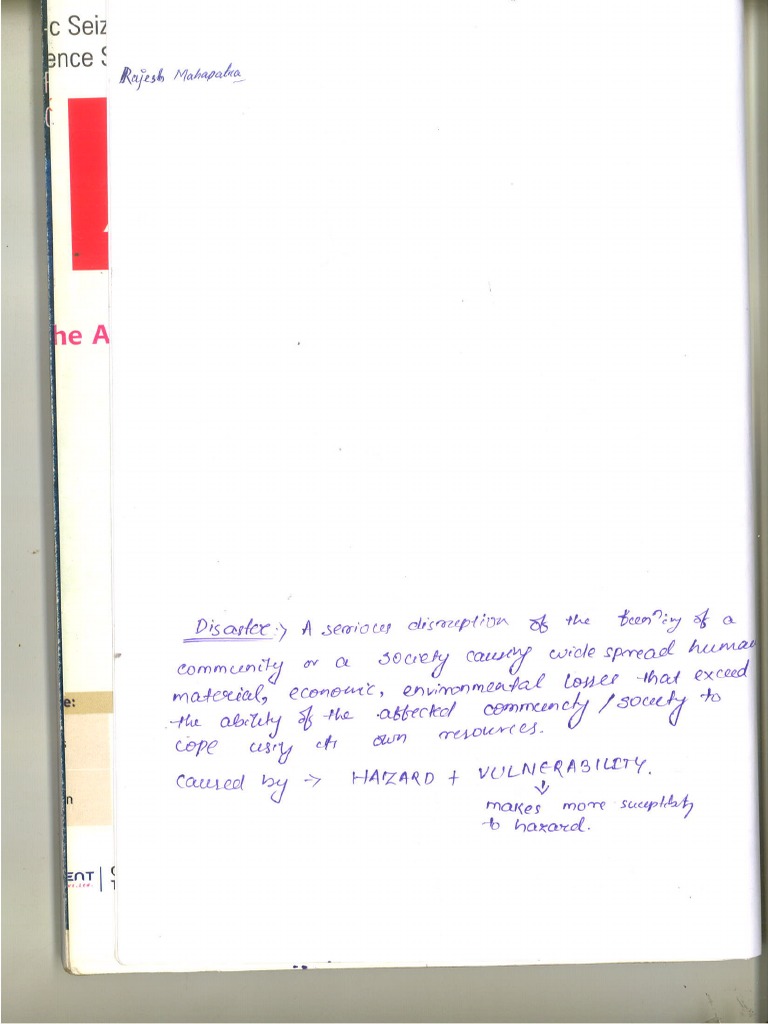 c Seiz
ence S
Rajesh Mahapatra
he A
Disaster :→ A serious disruption of the funⁿing of a
community or a society causing wide spread human
material, economic, environmental losses that exceed
the ability of the affected community / society to
cope using its own resources.
e:
caused by → HAZARD + VULNERABILITY.
n
makes more suceptibly
to hazard.
ENT